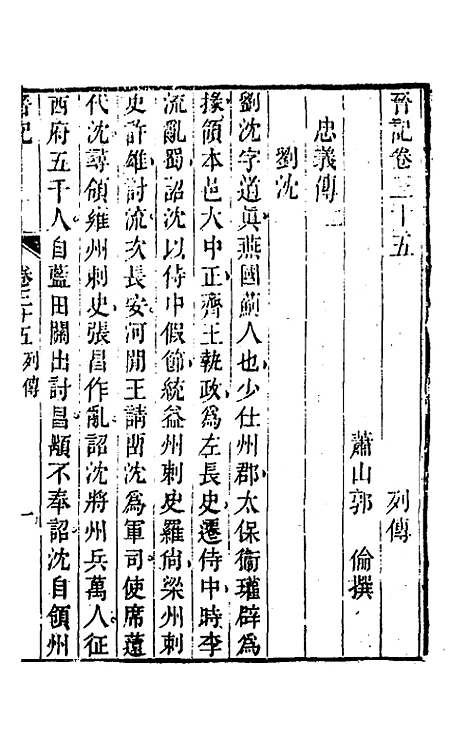 晉記卷三十五
列傳
蕭山郭倫撰
忠義傳二
劉沈
劉沈字道眞燕國薊人也少仕州郡太保衞瓘辟爲
掾領本邑大中正齊王執政爲左長史遷侍中時李
流亂蜀詔沈以侍中假節統益州刺史羅尙梁州刺
史許雄討流次長安河閒王請畱沈爲軍司使席薳
代沈尋領雍州刺史張昌作亂詔沈將州兵萬人征
西府五千人自藍田關出討昌顒不奉詔沈自領州
晉記
卷三十五列傳
一